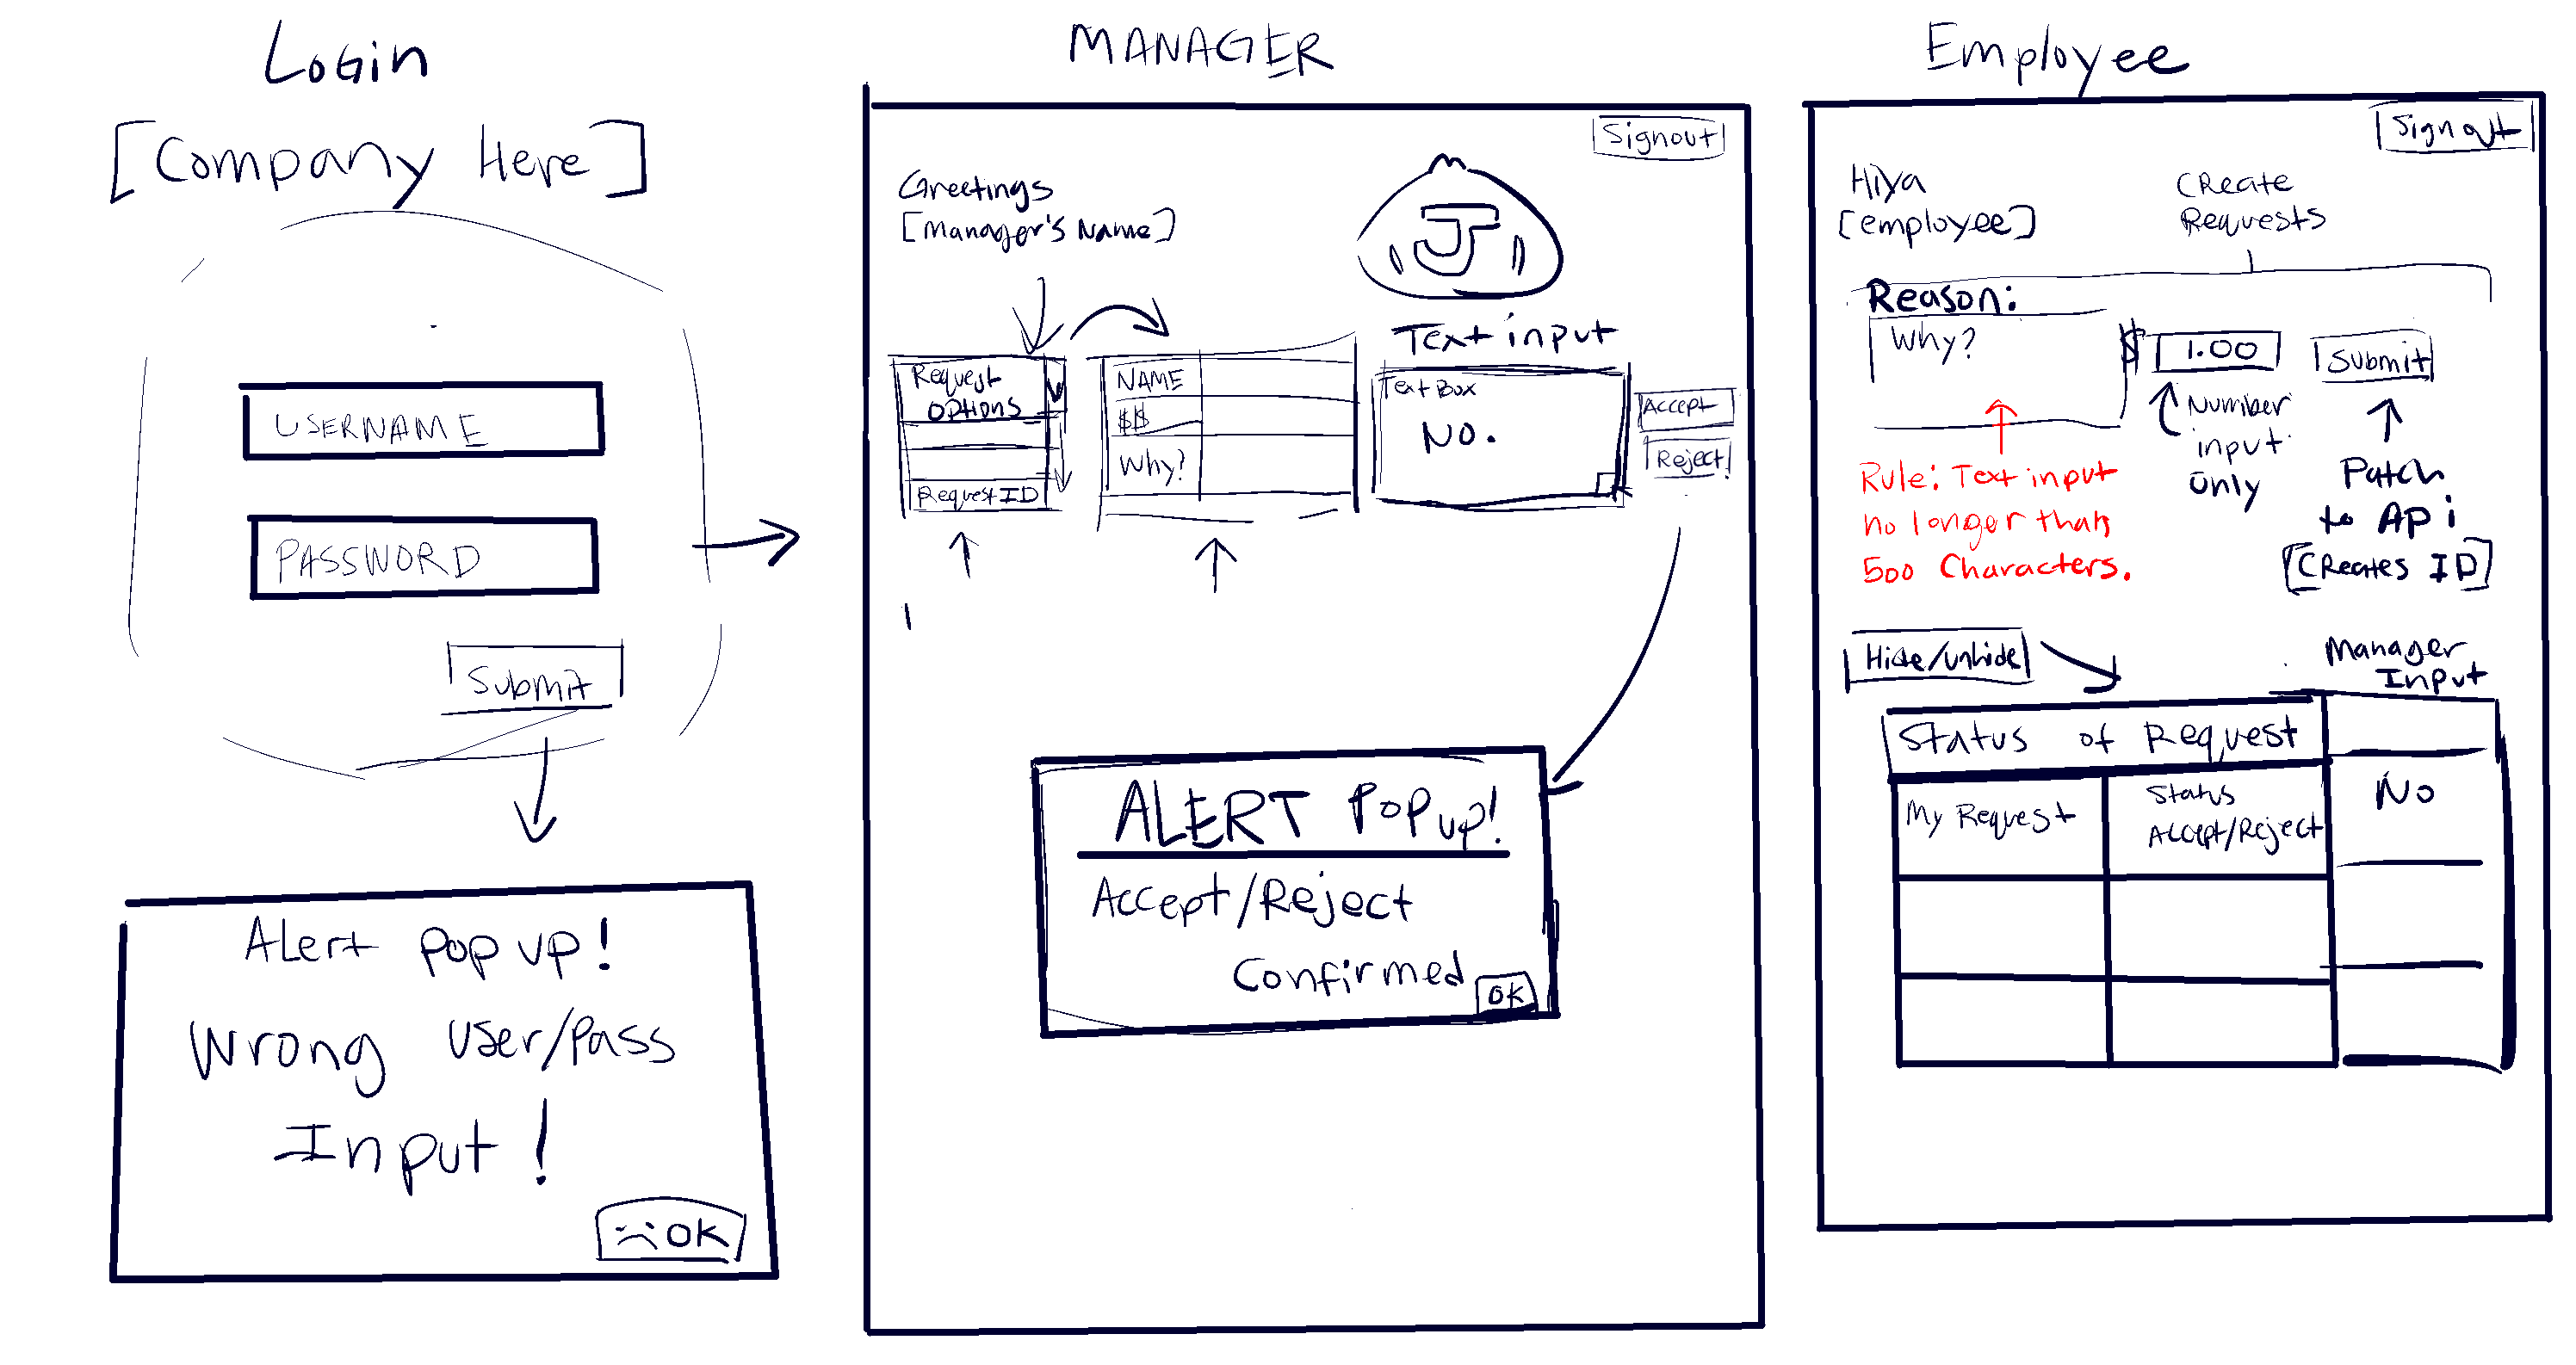 Login
[Company Here]
USERNAME
PASSWORD
Submit
Alert Pop up!
Wrong User/Pass
Input!
OK
MANAGER
Signout
Greetings
[Manager's Name]
J
Request
Options
Request ID
NAME
$$
Why?
Text input
Text Box
No.
Accept
Reject
ALERT Pop up!
Accept/Reject
Confirmed
OK
Employee
Sign out
Hiya
[employee]
Create
Requests
Reason:
Why?
$ 1.00
Submit
Number
input
only
Rule: Text input
no longer than
500 Characters.
Patch
to APi
[Creates ID]
Hide/Unhide
Manager
Input
Status of Request
My Request
Status
Accept/Reject
No